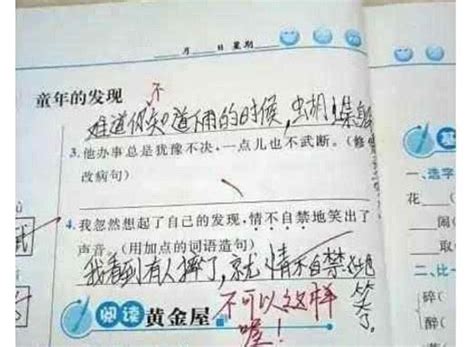 月 日 星期
童年的发现
不
难道你知道下雨的时候,
3.他办事总是犹豫不决,一点儿也不武断。(修
改病句)
4.我忽然想起了自己的发现,情不自禁地笑出了
声音。(用加点的词语造句)
我看到有人摔了,就情不自禁地笑了。
阅读 黄金屋
不可以这样
喔!
一、选字
花
闹(
取(
二、比一
碎(
醉(